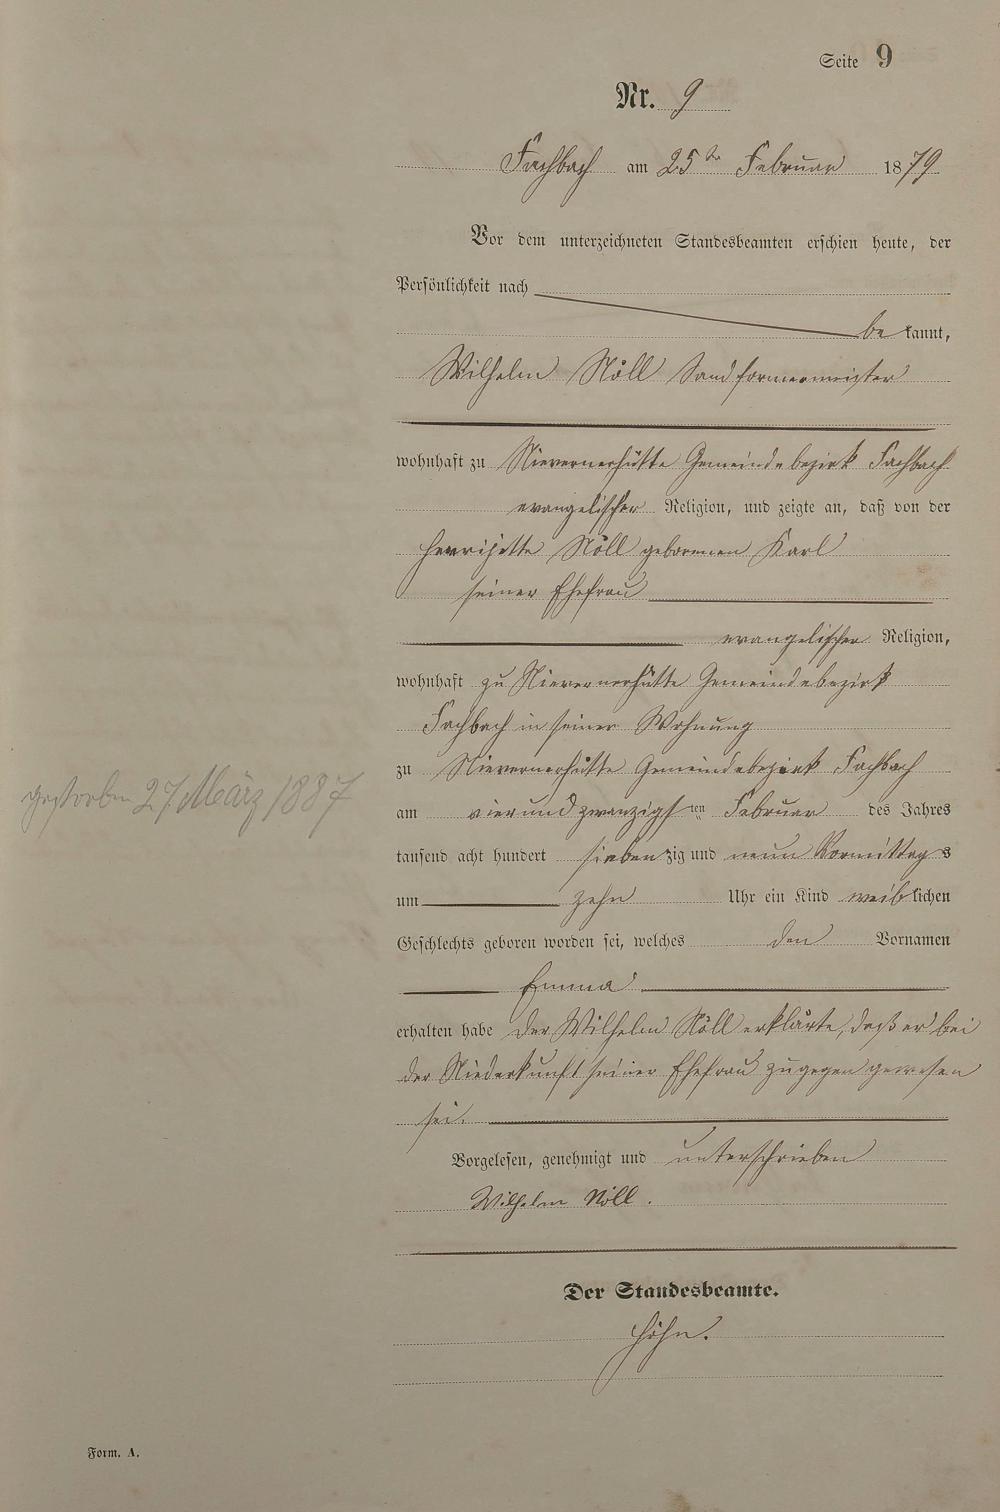 Seite 9
Nr. 9
Fachbach am 25ten Februar 1879
Vor dem unterzeichneten Standesbeamten erschien heute, der
Persönlichkeit nach
be kannt,
Wilhelm Nöll Sandformermeister
wohnhaft zu Nievernerhütte Gemeindebezirk Fachbach
evangelischer Religion, und zeigte an, daß von der
Henriette Nöll geborenen Karl
seiner Ehefrau
evangelischer Religion,
wohnhaft zu Nievernerhütte Gemeindebezirk
Fachbach in seiner Wohnung
zu Nievernerhütte Gemeindebezirk Fachbach
gestorben 27. März 1887
am vierundzwanzigsten Februar des Jahres
tausend acht hundert siebenzig und neun Vormittags
um zehn Uhr ein Kind weiblichen
Geschlechts geboren worden sei, welches den Vornamen
Emma
erhalten habe der Wilhelm Nöll erklärte, daß er bei
der Niederkunft seiner Ehefrau zugegen gewesen
sei.
Vorgelesen, genehmigt und unterschrieben
Wilhelm Nöll.
Der Standesbeamte.
Höhn.
Form. A.